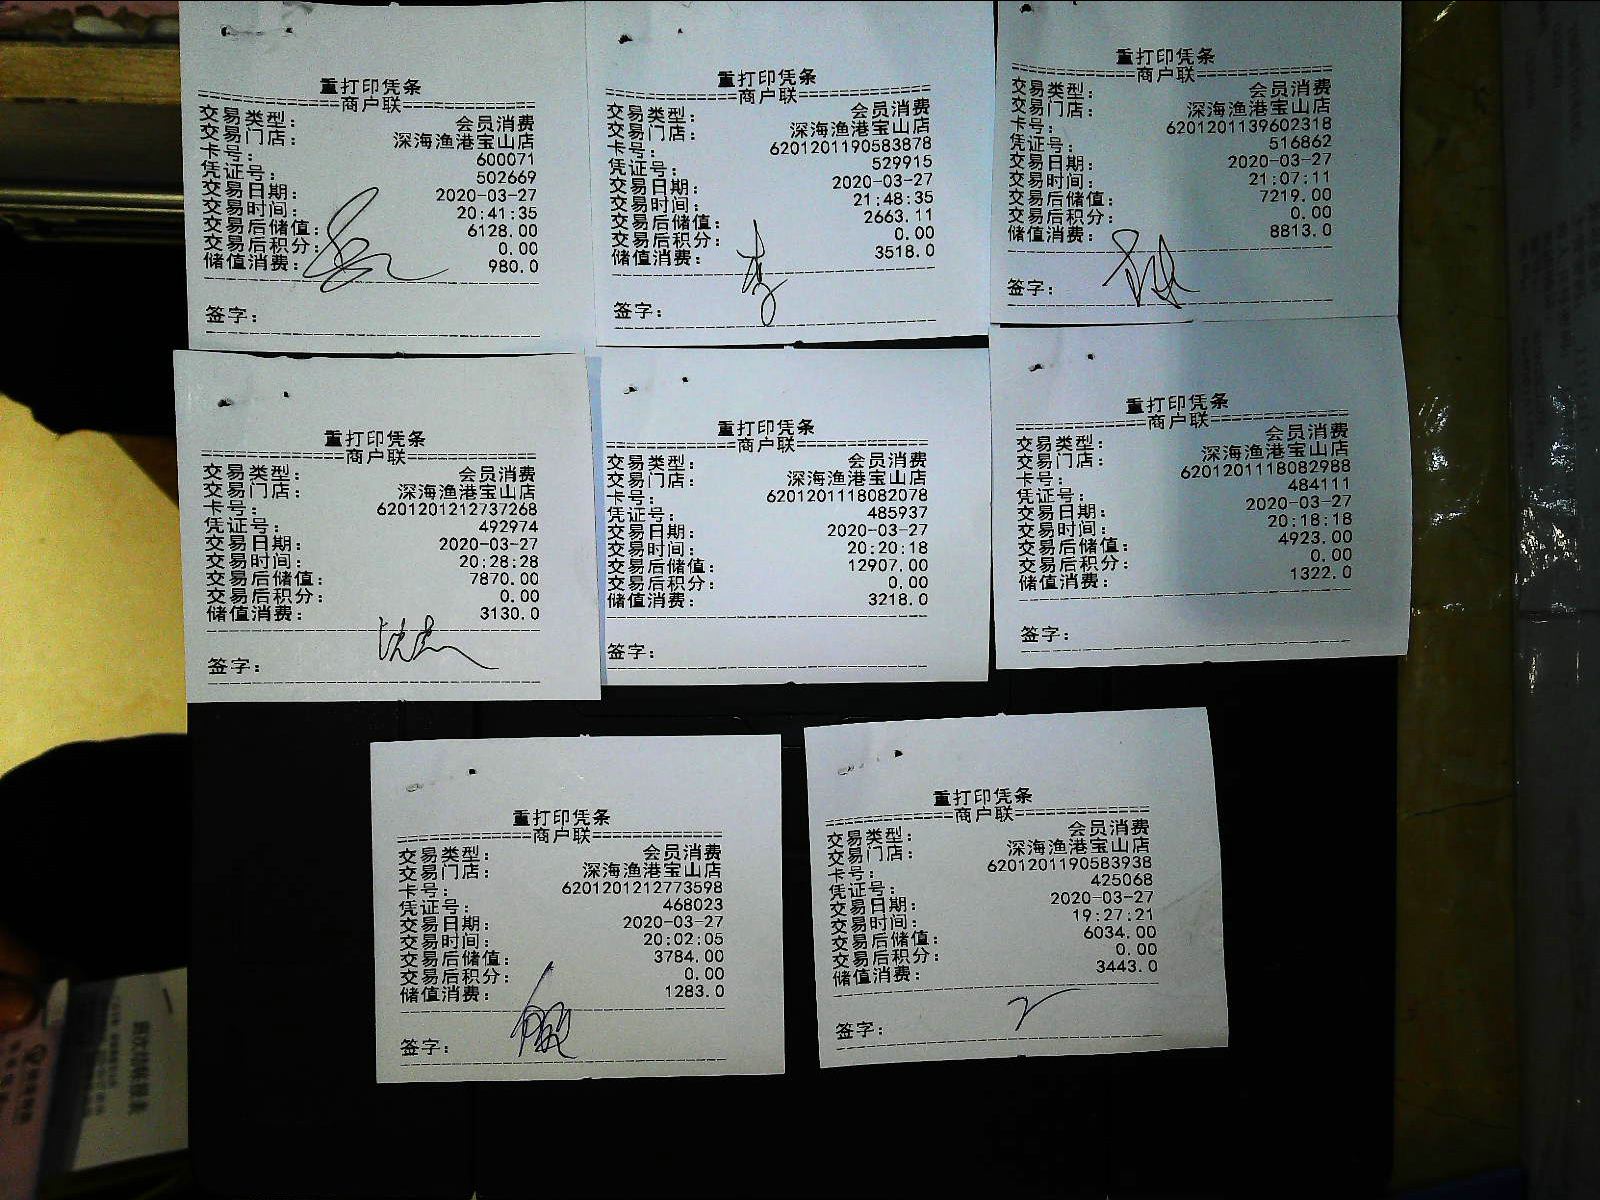 重打印凭条
==============商户联==============
交易类型： 会员消费
交易门店： 深海渔港宝山店
卡号： 600071
凭证号： 502669
交易日期： 2020-03-27
交易时间： 20:41:35
交易后储值： 6128.00
交易后积分： 0.00
储值消费： 980.0
签字：
重打印凭条
==============商户联==============
交易类型： 会员消费
交易门店： 深海渔港宝山店
卡号： 6201201190583878
凭证号： 529915
交易日期： 2020-03-27
交易时间： 21:48:35
交易后储值： 2663.11
交易后积分： 0.00
储值消费： 3518.0
签字：
重打印凭条
==============商户联==============
交易类型： 会员消费
交易门店： 深海渔港宝山店
卡号： 6201201139602318
凭证号： 516862
交易日期： 2020-03-27
交易时间： 21:07:11
交易后储值： 7219.00
交易后积分： 0.00
储值消费： 8813.0
签字：
重打印凭条
==============商户联==============
交易类型： 会员消费
交易门店： 深海渔港宝山店
卡号： 6201201212737268
凭证号： 492974
交易日期： 2020-03-27
交易时间： 20:28:28
交易后储值： 7870.00
交易后积分： 0.00
储值消费： 3130.0
签字：
重打印凭条
==============商户联==============
交易类型： 会员消费
交易门店： 深海渔港宝山店
卡号： 6201201118082078
凭证号： 485937
交易日期： 2020-03-27
交易时间： 20:20:18
交易后储值： 12907.00
交易后积分： 0.00
储值消费： 3218.0
签字：
重打印凭条
==============商户联==============
交易类型： 会员消费
交易门店： 深海渔港宝山店
卡号： 6201201118082988
凭证号： 484111
交易日期： 2020-03-27
交易时间： 20:18:18
交易后储值： 4923.00
交易后积分： 0.00
储值消费： 1322.0
签字：
重打印凭条
==============商户联==============
交易类型： 会员消费
交易门店： 深海渔港宝山店
卡号： 6201201212773598
凭证号： 468023
交易日期： 2020-03-27
交易时间： 20:02:05
交易后储值： 3784.00
交易后积分： 0.00
储值消费： 1283.0
签字：
重打印凭条
==============商户联==============
交易类型： 会员消费
交易门店： 深海渔港宝山店
卡号： 6201201190583938
凭证号： 425068
交易日期： 2020-03-27
交易时间： 19:27:21
交易后储值： 6034.00
交易后积分： 0.00
储值消费： 3443.0
签字：